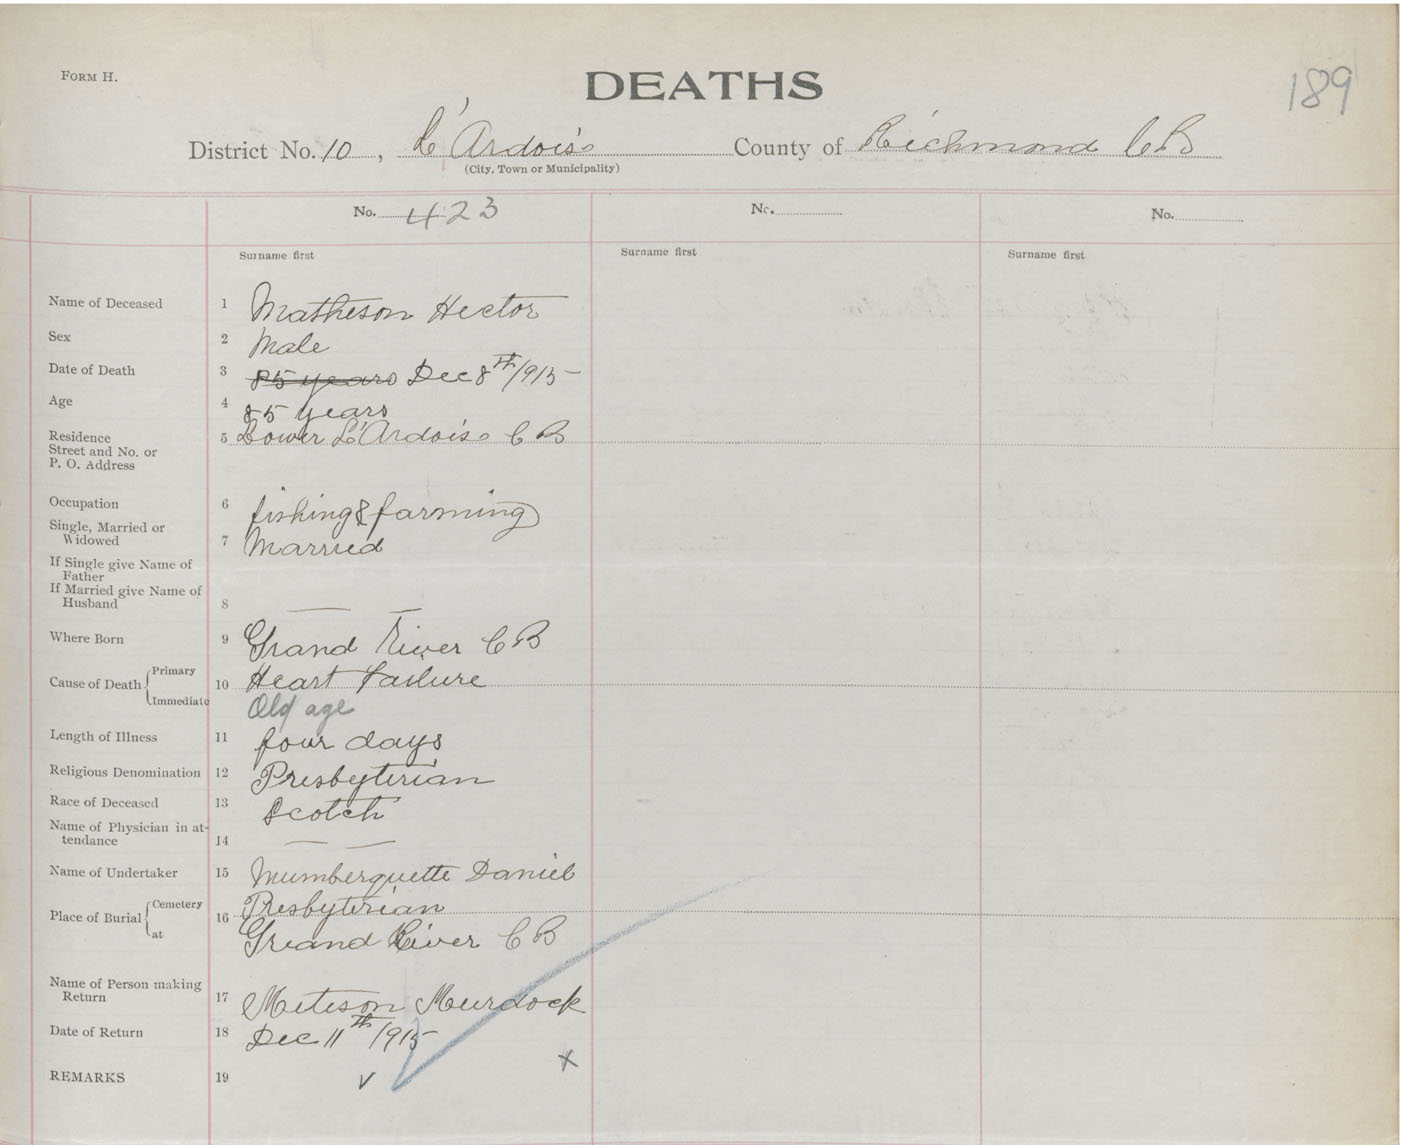 FORM H.
DEATHS
189
District No. 10, L'Ardoise County of Richmond C B
(City, Town or Municipality)
No. 423 No. No.
Surname first Surname first Surname first
Name of Deceased 1 Matheson Hector
Sex 2 Male
Date of Death 3 85 years Dec 8th/915
Age 4 85 years
Residence 5 Lower L'Ardoise C B
Street and No. or
P. O. Address
Occupation 6 fishing & farming
Single, Married or
Widowed 7 Married
If Single give Name of
Father
If Married give Name of
Husband 8 — —
Where Born 9 Grand River C B
Cause of Death Primary 10 Heart failure
Immediate Old age
Length of Illness 11 four days
Religious Denomination 12 Presbyterian
Race of Deceased 13 Scotch
Name of Physician in at-
tendance 14 — —
Name of Undertaker 15 Mumberquette Daniel
Place of Burial Cemetery 16 Presbyterian
at Greand River C B
Name of Person making
Return 17 Meteson Murdock
Date of Return 18 Dec 11th/915
REMARKS 19